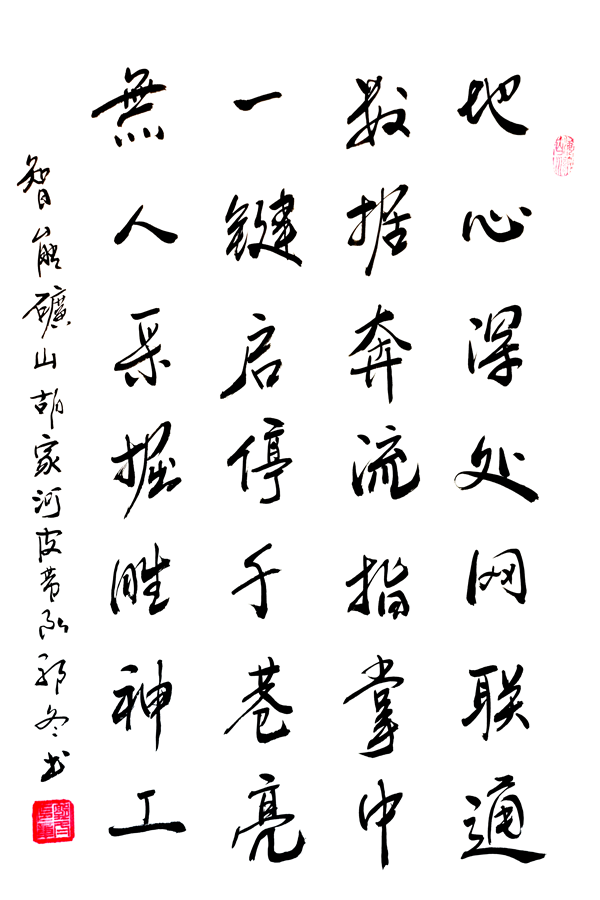 地心深处网联通
数据奔流指掌中
一键启停千巷亮
無人采掘胜神工
智能礦山胡家河皮带队郭冬书